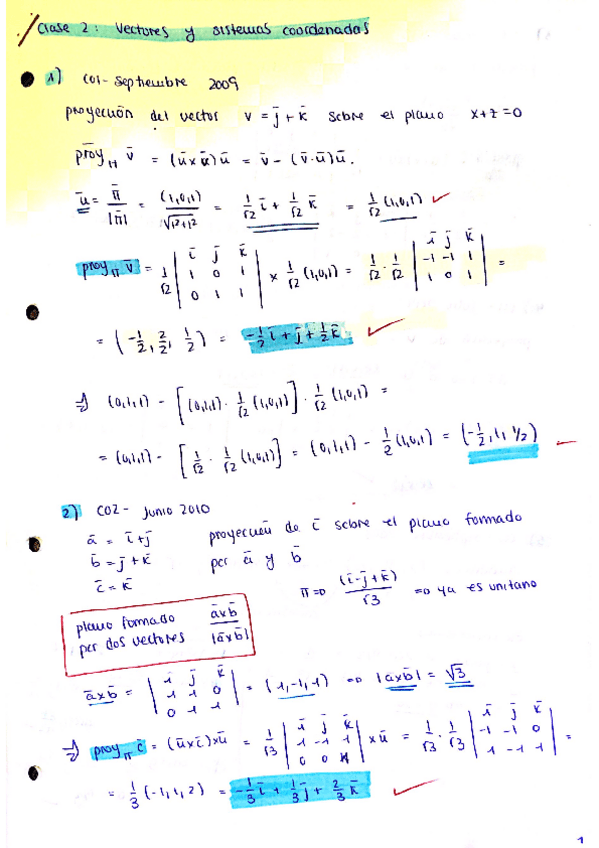 Clase 2: Vectores y sistemas coordenadas
1) C01 - Septiembre 2009
proyección del vector v = j̄ + k̄ sobre el plano x+z=0
proy_π v̄ = (ū×v̄)ū = v̄ - (v̄·ū)ū.
ū = n̄/|n̄| = (1,0,1)/√(1²+1²) = 1/√2 ī + 1/√2 k̄ = 1/√2 (1,0,1)
proy_π v̄ = 1/√2 | ī j̄ k̄ ; 1 0 1 ; 0 1 1 | × 1/√2 (1,0,1) = 1/√2 · 1/√2 | ī j̄ k̄ ; -1 -1 1 ; 1 0 1 | =
= (-1/2, 2/2, 1/2) = -1/2 ī + j̄ + 1/2 k̄
⇒ (0,1,1) - [(0,1,1) · 1/√2 (1,0,1)] · 1/√2 (1,0,1) =
= (0,1,1) - [1/√2 · 1/√2 (1,0,1)] = (0,1,1) - 1/2 (1,0,1) = (-1/2, 1, 1/2)
2) C02 - Junio 2010
ā = ī + j̄ proyección de c̄ sobre el plano formado
b̄ = j̄ + k̄ por ā y b̄
c̄ = k̄
π ⇒ (ī - j̄ + k̄)/√3 ⇒ ya es unitario
plano formado por dos vectores āxb̄/|āxb̄|
āxb̄ = | ī j̄ k̄ ; 1 1 0 ; 0 1 1 | = (1,-1,1) ⇒ |āxb̄| = √3
⇒ proy_π c̄ = (ūxc̄)xū = 1/√3 | ī j̄ k̄ ; 1 -1 1 ; 0 0 1 | xū = 1/√3 · 1/√3 | ī j̄ k̄ ; -1 -1 0 ; 1 -1 1 | =
= 1/3 (-1,1,2) = -1/3 ī + 1/3 j̄ + 2/3 k̄
1